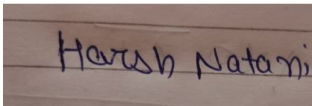 Harsh Natani